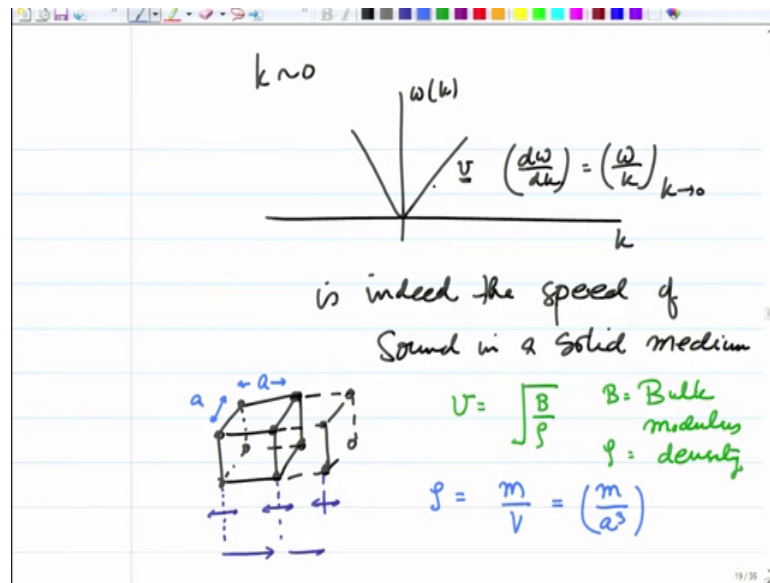 k ~ 0
ω(k)
v (dω/dk) = (ω/k)k→0
k
is indeed the speed of
Sound in a solid medium
a ← a →
v = √(B/ρ) B = Bulk
modulus
ρ = density
ρ = m/V = (m/a³)
19/35